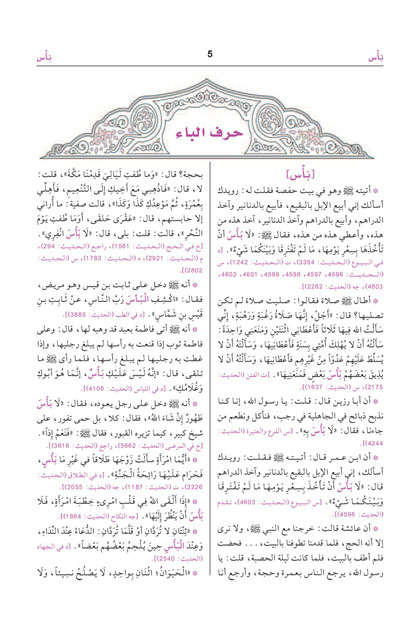 بَأْس
5
بَأْس
حرف الباء
[بَأْس]
* أتيته ﷺ وهو في بيت حفصة فقلت له: رويدك
أسألك إني أبيع الإبل بالبقيع، فأبيع بالدنانير وآخذ
الدراهم، وأبيع بالدراهم وآخذ الدنانير، آخذ هذه من
هذه، وأعطي هذه من هذه، فقال ﷺ: «لَا بَأْسَ أَنْ
تَأْخُذَهَا بِسِعْرِ يَوْمِهَا، مَا لَمْ تَفْتَرِقَا وَبَيْنَكُمَا شَيْءٌ». [د
في البيوع (الحديث: 3354)، ت (الحديث: 1242)، س
(الحديث: 4596، 4597، 4598، 4599، 4601، 4602،
4603)، جه (الحديث: 2262)].
* أطال ﷺ صلاة فقالوا: صليت صلاة لم تكن
تصليها؟ قال: «أَجَلْ، إِنَّهَا صَلَاةُ رَغْبَةٍ وَرَهْبَةٍ، إِنِّي
سَأَلْتُ اللهَ فِيهَا ثَلَاثاً فَأَعْطَانِي اثْنَتَيْنِ وَمَنَعَنِي وَاحِدَةً:
سَأَلْتُهُ أَنْ لَا يُهْلِكَ أُمَّتِي بِسَنَةٍ فَأَعْطَانِيهَا، وَسَأَلْتُهُ أَنْ لَا
يُسَلِّطَ عَلَيْهِمْ عَدُوّاً مِنْ غَيْرِهِمْ فَأَعْطَانِيهَا، وَسَأَلْتُهُ أَنْ لَا
يُذِيقَ بَعْضَهُمْ بَأْسَ بَعْضٍ فَمَنَعَنِيهَا». [ت الفتن (الحديث:
2175)، س (الحديث: 1637)].
* أن أبا رزين قال: قلت: يا رسول الله، إنا كنا
نذبح ذبائح في الجاهلية في رجب، فنأكل ونطعم من
جاءنا، فقال: «لَا بَأْسَ بِهِ». [س الفرع والعتيرة (الحديث:
4244)].
* أن ابن عمر قال: أتيته ﷺ فقلت: رويدك
أسألك، إني أبيع الإبل بالبقيع بالدنانير وآخذ الدراهم
قال: «لَا بَأْسَ أَنْ تَأْخُذَ بِسِعْرِ يَوْمِهَا مَا لَمْ تَفْتَرِقَا
وَبَيْنَكُمَا شَيْءٌ». [س البيوع (الحديث: 4603)، تقدم
(الحديث: 4596)].
* أن عائشة قالت: خرجنا مع النبي ﷺ، ولا نرى
إلا أنه الحج، فلما قدمنا تطوفنا بالبيت، ... فحضت
فلم أطف بالبيت، فلما كانت ليلة الحصبة، قلت: يا
رسول الله، يرجع الناس بعمرة وحجة، وأرجع أنا
بحجة؟ قال: «وَمَا طُفْتِ لَيَالِيَ قَدِمْنَا مَكَّةَ»، قلت:
لا، قال: «فَاذْهَبِي مَعَ أَخِيكِ إِلَى التَّنْعِيمِ، فَأَهِلِّي
بِعُمْرَةٍ، ثُمَّ مَوْعِدُكِ كَذَا وَكَذَا»، قالت صفية: ما أُراني
إلا حابستهم، قال: «عَقْرَى حَلْقَى، أَوَمَا طُفْتِ يَوْمَ
النَّحْرِ»، قالت: قلت: بلى، قال: «لَا بَأْسَ انْفِرِي».
[خ في الحج (الحديث: 1561)، راجع (الحديث: 294)،
م (الحديث: 2921)، د (الحديث: 1783)، س (الحديث:
2802)].
* أنه ﷺ دخل على ثابت بن قيس وهو مريض،
فقال: «اكْشِفِ الْبَأْسَ رَبَّ النَّاسِ، عن ثَابِتِ بنِ
قَيْسِ بنِ شَمَّاسٍ». [د في الطب (الحديث: 3885)].
* أنه ﷺ أتى فاطمة بعبد قد وهبه لها، قال: وعلى
فاطمة ثوب إذا قنعت به رأسها لم يبلغ رجليها، وإذا
غطت به رجليها لم يبلغ رأسها، فلما رأى ﷺ ما
تلقى، قال: «إنَّهُ لَيْسَ عَلَيْكِ بَأْسٌ، إِنَّمَا هُوَ أَبُوكِ
وَغُلَامُكِ». [د في اللباس (الحديث: 4106)].
* أنه ﷺ دخل على رجل يعوده، فقال: «لَا بَأْسَ
طَهُورٌ إِنْ شَاءَ اللهُ»، فقال: كلا، بل حمى تفور، على
شيخ كبير، كيما تزيره القبور، فقال ﷺ: «فَنَعَمْ إِذاً».
[خ في المرضى (الحديث: 5662)، راجع (الحديث: 3616)].
* «أَيُّمَا امْرَأَةٍ سَأَلَتْ زَوْجَهَا طَلَاقاً في غَيْرِ مَا بَأْسٍ،
فَحَرَامٌ عَلَيْهَا رَائِحَةُ الْجَنَّةِ». [د في الطلاق (الحديث:
2226)، ت (الحديث: 1187)، جه (الحديث: 2055)].
* «إِذَا أَلْقَى اللهُ فِي قَلْبِ امْرِىءٍ خِطْبَةَ امْرَأَةٍ، فَلَا
بَأْسَ أَنْ يَنْظُرَ إِلَيْهَا». [جه النكاح (الحديث: 1864)].
* «ثِنْتَانِ لَا تُرَدَّانِ أوْ قَلَّمَا تُرَدَّانِ: الدُّعَاءُ عِنْدَ النِّدَاءِ،
وَعِنْدَ الْبَأْسِ حِينَ يُلْحِمُ بَعْضُهُمْ بَعْضاً». [د في الجهاد
(الحديث: 2540)].
* «الْحَيَوَانُ؛ اثْنَانِ بِوَاحِدٍ، لَا يَصْلُحُ نَسِيئاً، وَلَا